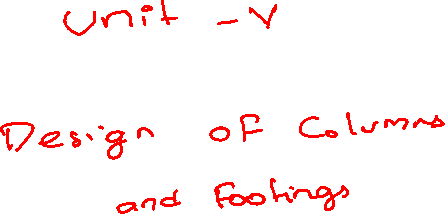 Unit - V
Design of Columns
and Footings